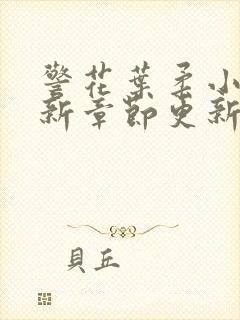 警花葉柔小
新章節更新
貝丘